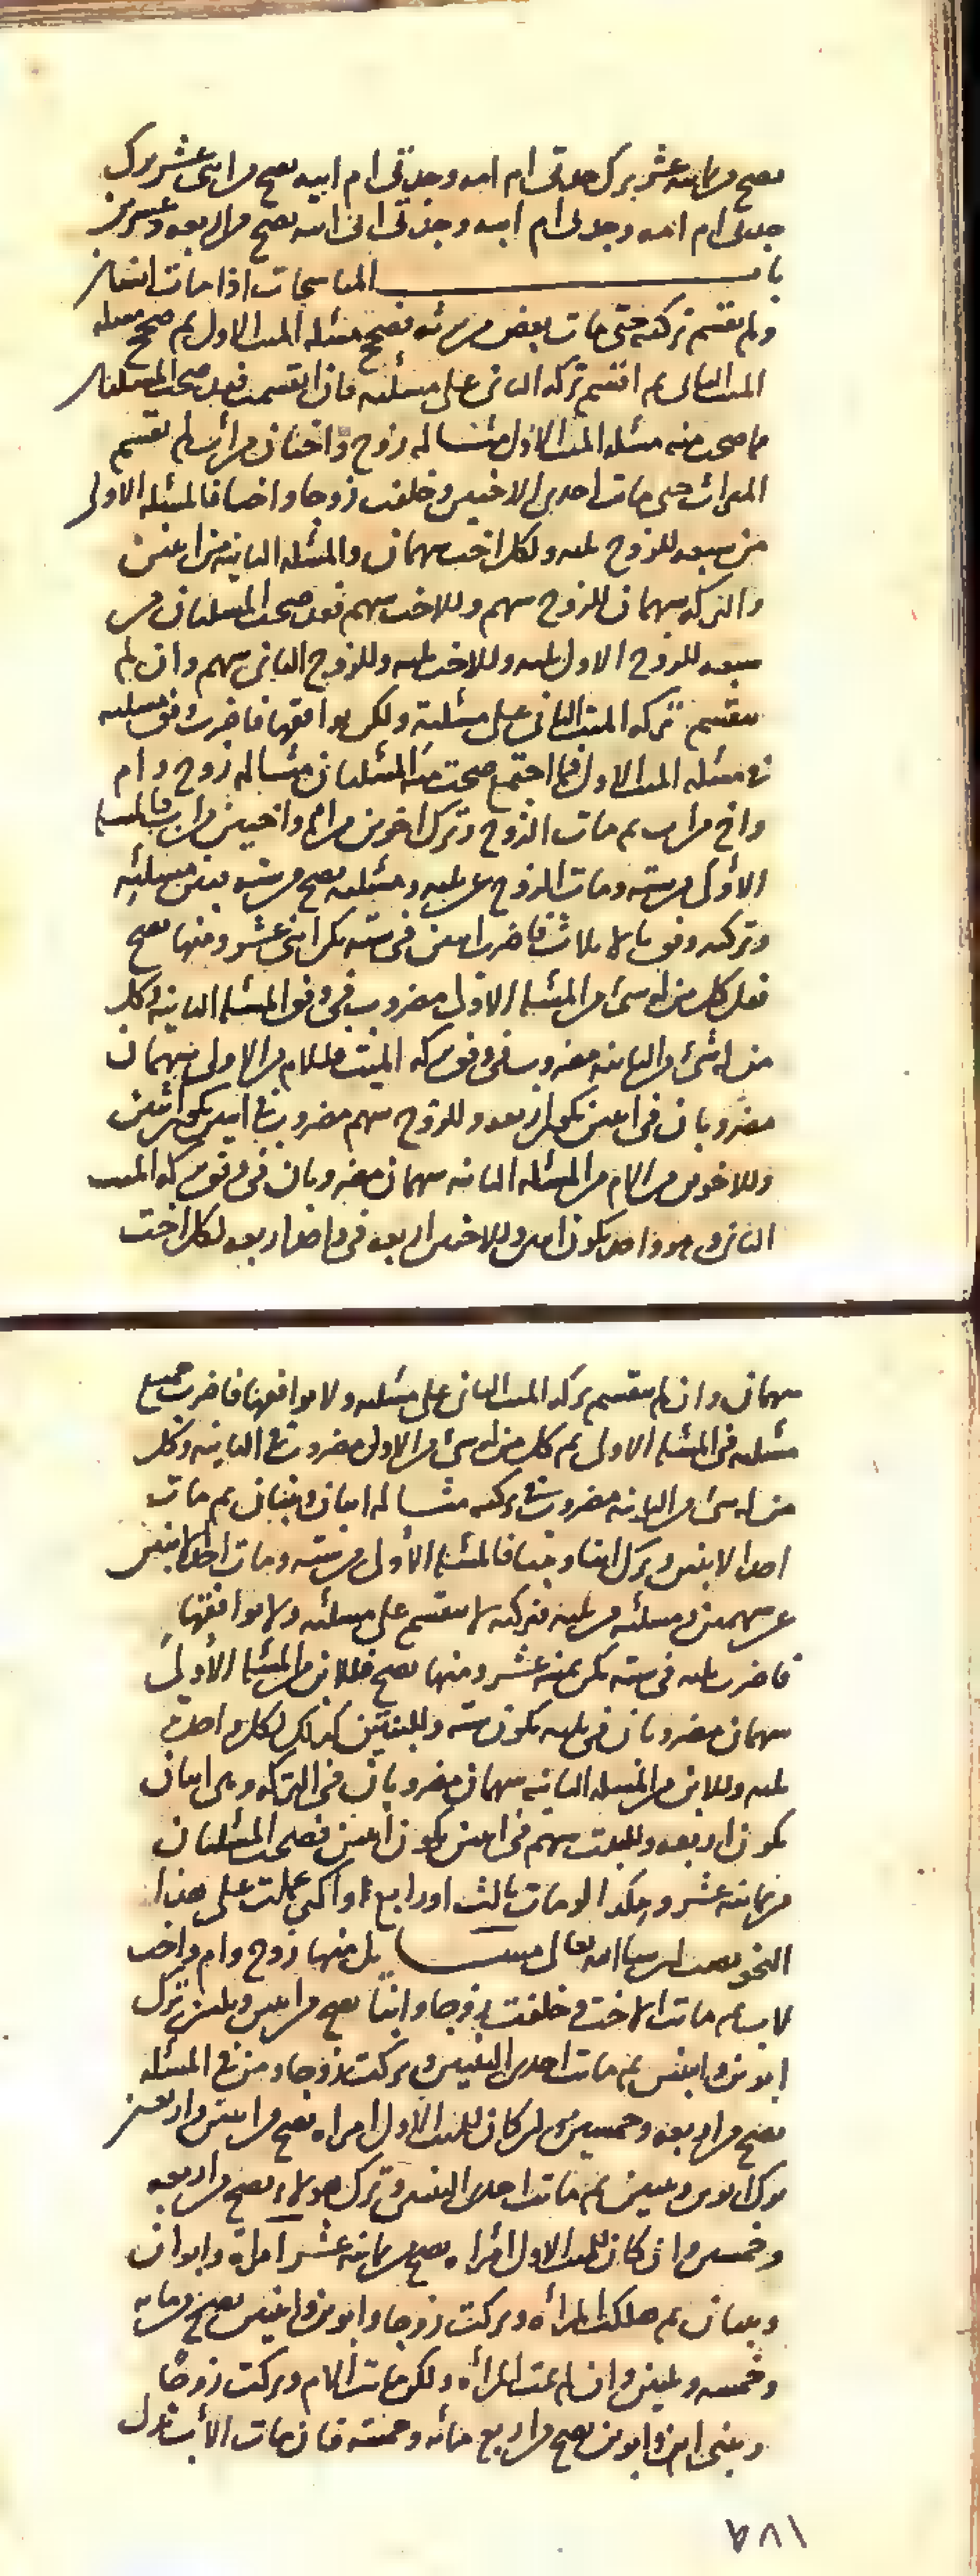 تصح من ثمانية عشر ترك جدتي ام امه وجدتي ام ابيه تصح من اثني عشر ترك
جدتي ام امه وجدتي ام ابيه وجدتي ابي ابيه تصح من اربعة وعشرين
باب المناسخات اذا مات انسان
ولم تقسم تركته حتى مات بعض ورثته فصحح مسئلة الميت الاول ثم صحح مسئلة
الميت الثاني ثم اقسم تركة الثاني على مسئلته فان انقسمت فقد صحت المسئلتان
مما صحت منه مسئلة الميت الاول مثاله زوج واختان من اب لم تقسم
الميراث حتى مات احدى الاختين وخلفت زوجا واختا فالمسئلة الاولى
من سبعة للزوج ثلثة ولكل اخت سهمان والمسئلة الثانية من اثنين
والتركة سهمان للزوج سهم وللاخت سهم فقد صحت المسئلتان من
سبعة للزوج الاول ثلثة وللاخت ثلثة وللزوج الثاني سهم وان لم
تنقسم تركة الميت الثاني على مسئلته ولكن يوافقها فاضرب وفق مسئلته
في مسئلة الميت الاول فما اجتمع صحت منه المسئلتان مثاله زوج وام
واخ من اب ثم مات الزوج وترك اخوين من ام واختين من اب فالمسئلة
الاولى من ستة ومات الزوج عن ثلثة ومسئلته تصح من ستة وبين مسئلته
وتركته وفق بالاثلاث فاضرب اثنين في ستة تكن اثني عشر ومنها تصح
فقل كل من له شئ من المسئلة الاولى مضروب في وفق المسئلة الثانية وكل
من له شئ من الثانية مضروب في وفق تركة الميت فللام من الاولى سهمان
مضروبان في اثنين تكون اربعة وللزوج سهم مضروب في اثنين يكون اثنين
وللاخوين من الام من المسئلة الثانية سهمان مضروبان في وفق تركة الميت
الثاني وهو واحد يكون اثنين وللاختين اربعة في واحد اربعة لكل اخت
سهمان وان لم تنقسم تركة الميت الثاني على مسئلته ولا يوافقها فاضرب جميع
مسئلته في المسئلة الاولى ثم كل من له شئ من الاولى مضروب في الثانية وكل
من له شئ من الثانية مضروب في تركته مثاله ابنان وبنتان ثم مات
احد الابنين وترك ابنا وبنتا فالمسئلة الاولى من ستة ومات احد الابنين
عن سهمين ومسئلته من ثلثة فتركته لا تنقسم على مسئلته ولا يوافقها
فاضرب ثلثة في ستة تكن ثمنية عشر ومنها تصح فللابن من المسئلة الاولى
سهمان مضروبان في ثلثة تكون ستة وللبنتين كذلك لكل واحدة
ثلثة وللابن من المسئلة الثانية سهمان مضروبان في التركة وهي اثنان
تكون اربعة وللبنت سهم في اثنين يكون اثنين فصحت المسئلتان
من ثمانية عشر وهكذا لو مات ثالث او رابع او اكثر عملت على هذا
النحو تصب ان شا الله تعالى مسائل منها زوج وام واخت
لاب ثم ماتت الاخت وخلفت زوجا وابنتا تصح من اثنين وثلثين ترك
ابوين وابنتين ثم ماتت احدى البنتين وتركت زوجا ومن في المسئلة
تصح من اربعة وخمسين ولو كان للميت الاول امراة تصح من اثنين واربعين
ترك ابوين وبنتين ثم ماتت احدى البنتين وترك هولاء تصح من اربعة
وخمسين وان كان للميت الاول امراة تصح من ثمانية عشر امراة وابوان
وبنتان ثم هلكت المراة وتركت زوجا وابوين وابنتين تصح من مائة
وخمسة وثلثين وان لم تمت المراة ولكن ماتت الام وتركت زوجا
وبنتي ابن وابوين تصح من اربع مائة وخمسة فان مات الاب بدل
١٨١